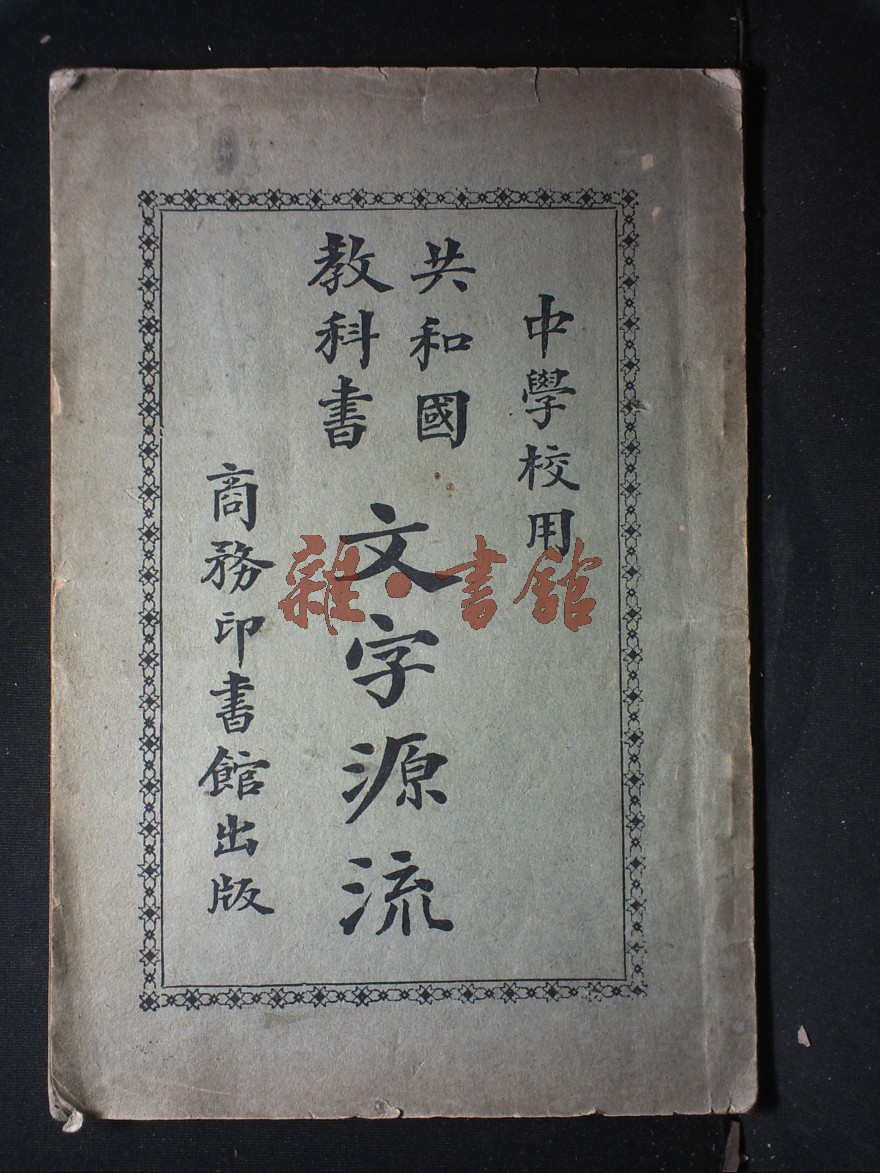 中學校用
共和國
教科書
文字源流
商務印書館出版
雜·書館